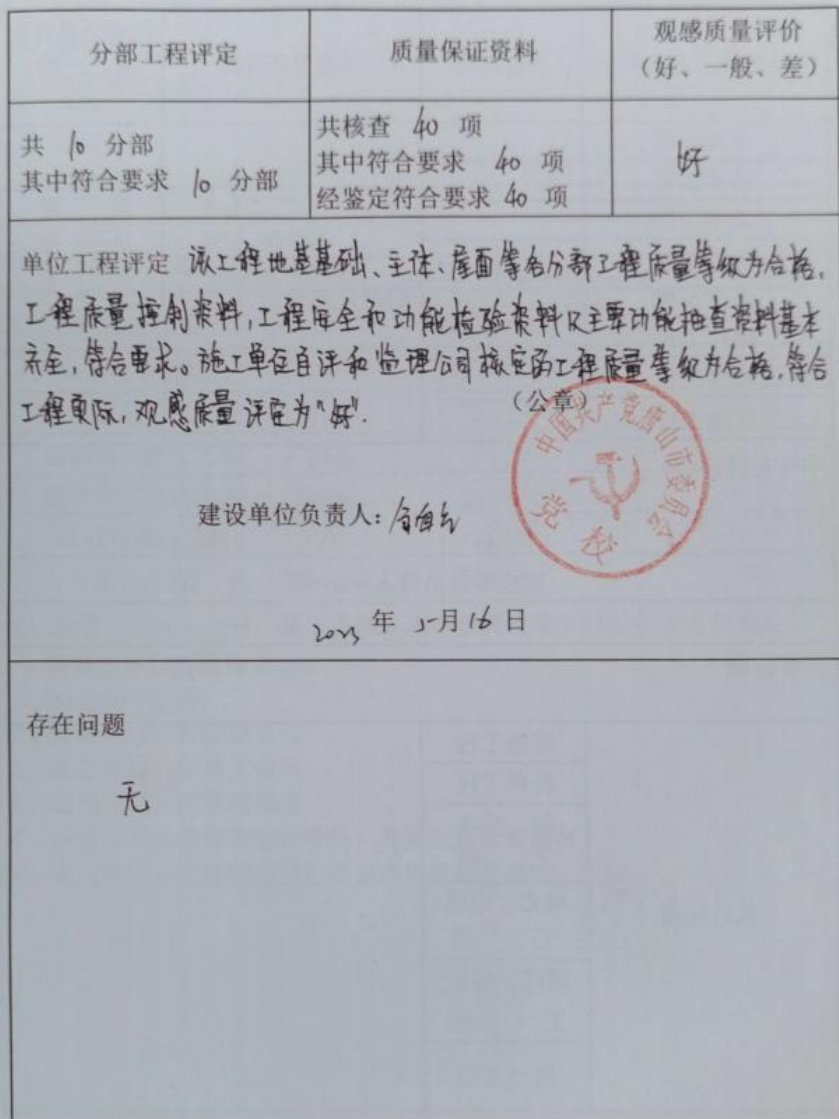 分部工程评定
质量保证资料
观感质量评价
（好、一般、差）
共 10 分部
其中符合要求 10 分部
共核查 40 项
其中符合要求 40 项
经鉴定符合要求 40 项
好
单位工程评定 该工程地基基础、主体、屋面等各分部工程质量等级为合格，
工程质量控制资料，工程安全和功能检验资料及主要功能抽查资料基本
齐全，符合要求。施工单位自评和监理公司核定的工程质量等级为合格，符合
工程实际，观感质量评定为“好”.
（公章）
中国共产党唐山市委员会
党校
建设单位负责人：
2023 年 5月16日
存在问题
无